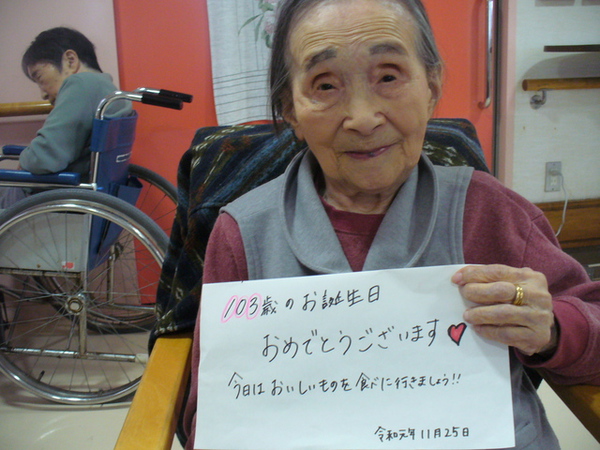 103歳のお誕生日
おめでとうございます♥
今日はおいしいものを食べに行きましょう!!
令和元年11月25日